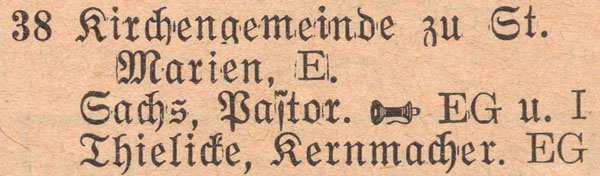 38 Kirchengemeinde zu St.
Marien, E.
Sachs, Paſtor. EG u. I
Thielicke, Kernmacher. EG